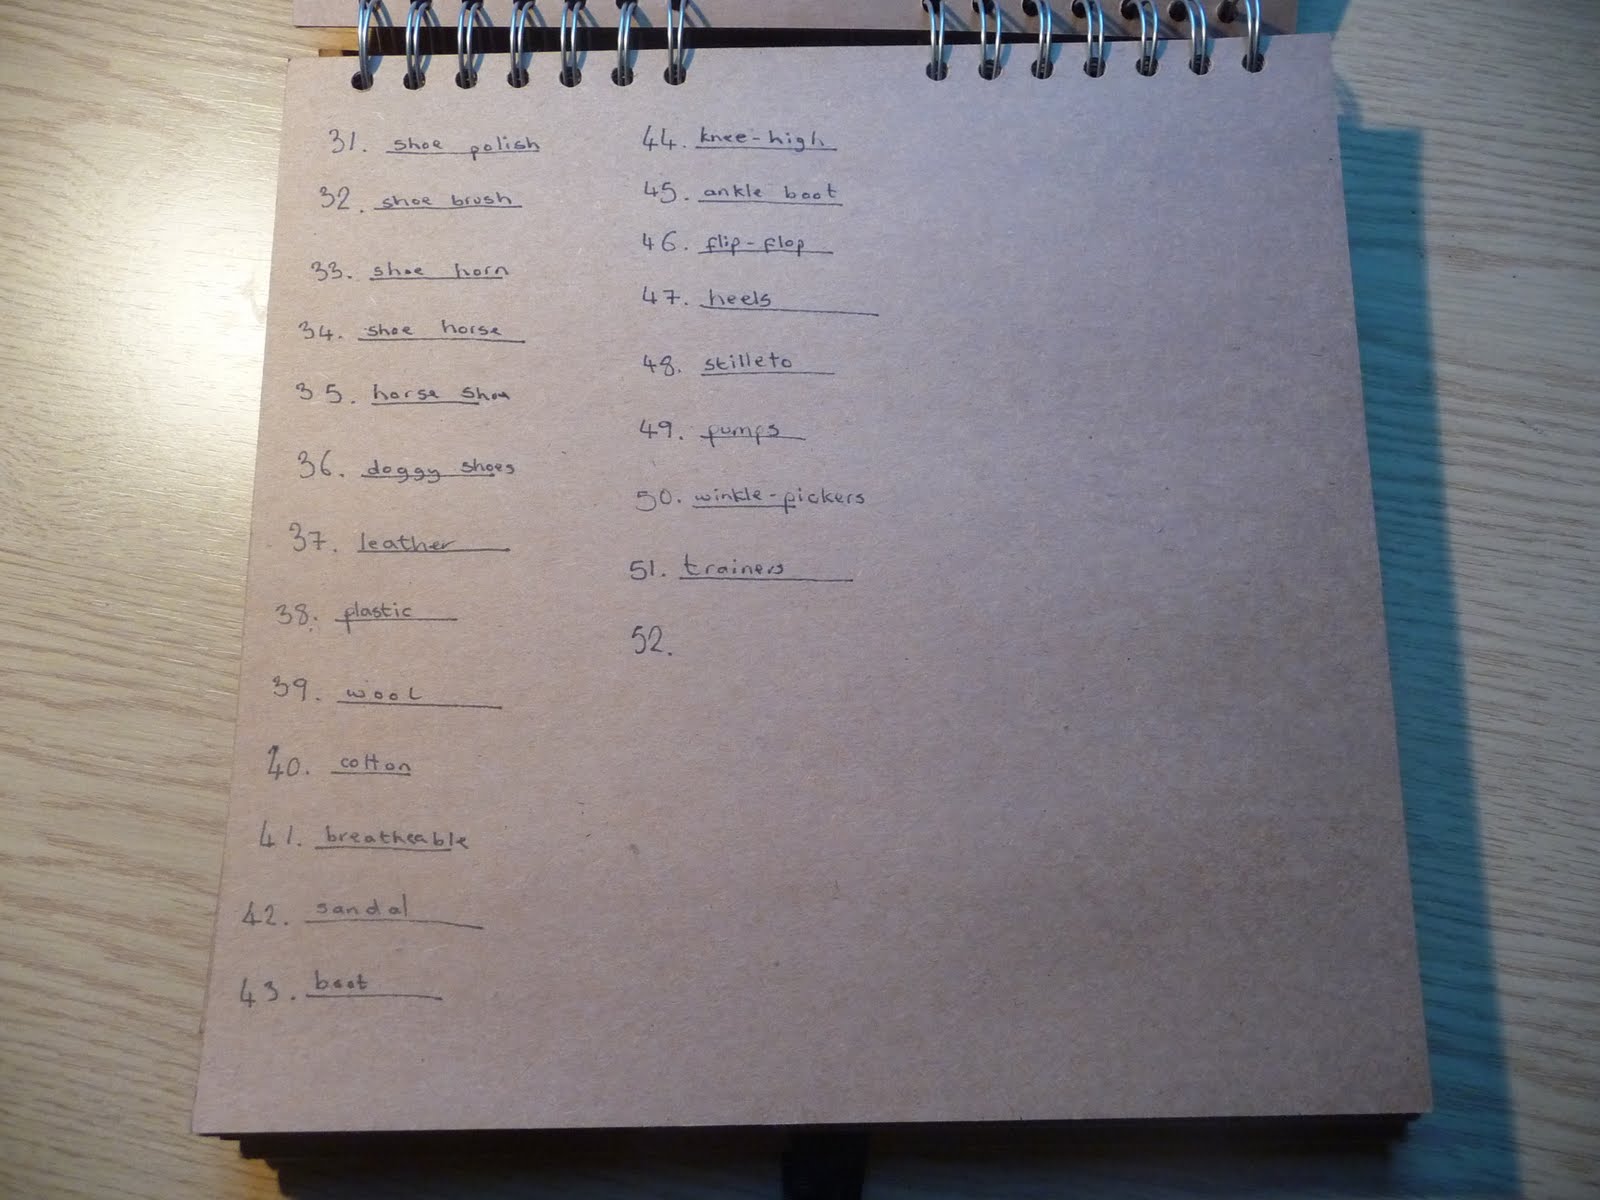 31. shoe polish
32. shoe brush
33. shoe horn
34. shoe horse
35. horse shoe
36. doggy shoes
37. leather
38. plastic
39. wool
40. cotton
41. breatheable
42. sandal
43. boot
44. knee-high
45. ankle boot
46. flip-flop
47. heels
48. stilleto
49. pumps
50. winkle-pickers
51. trainers
52.